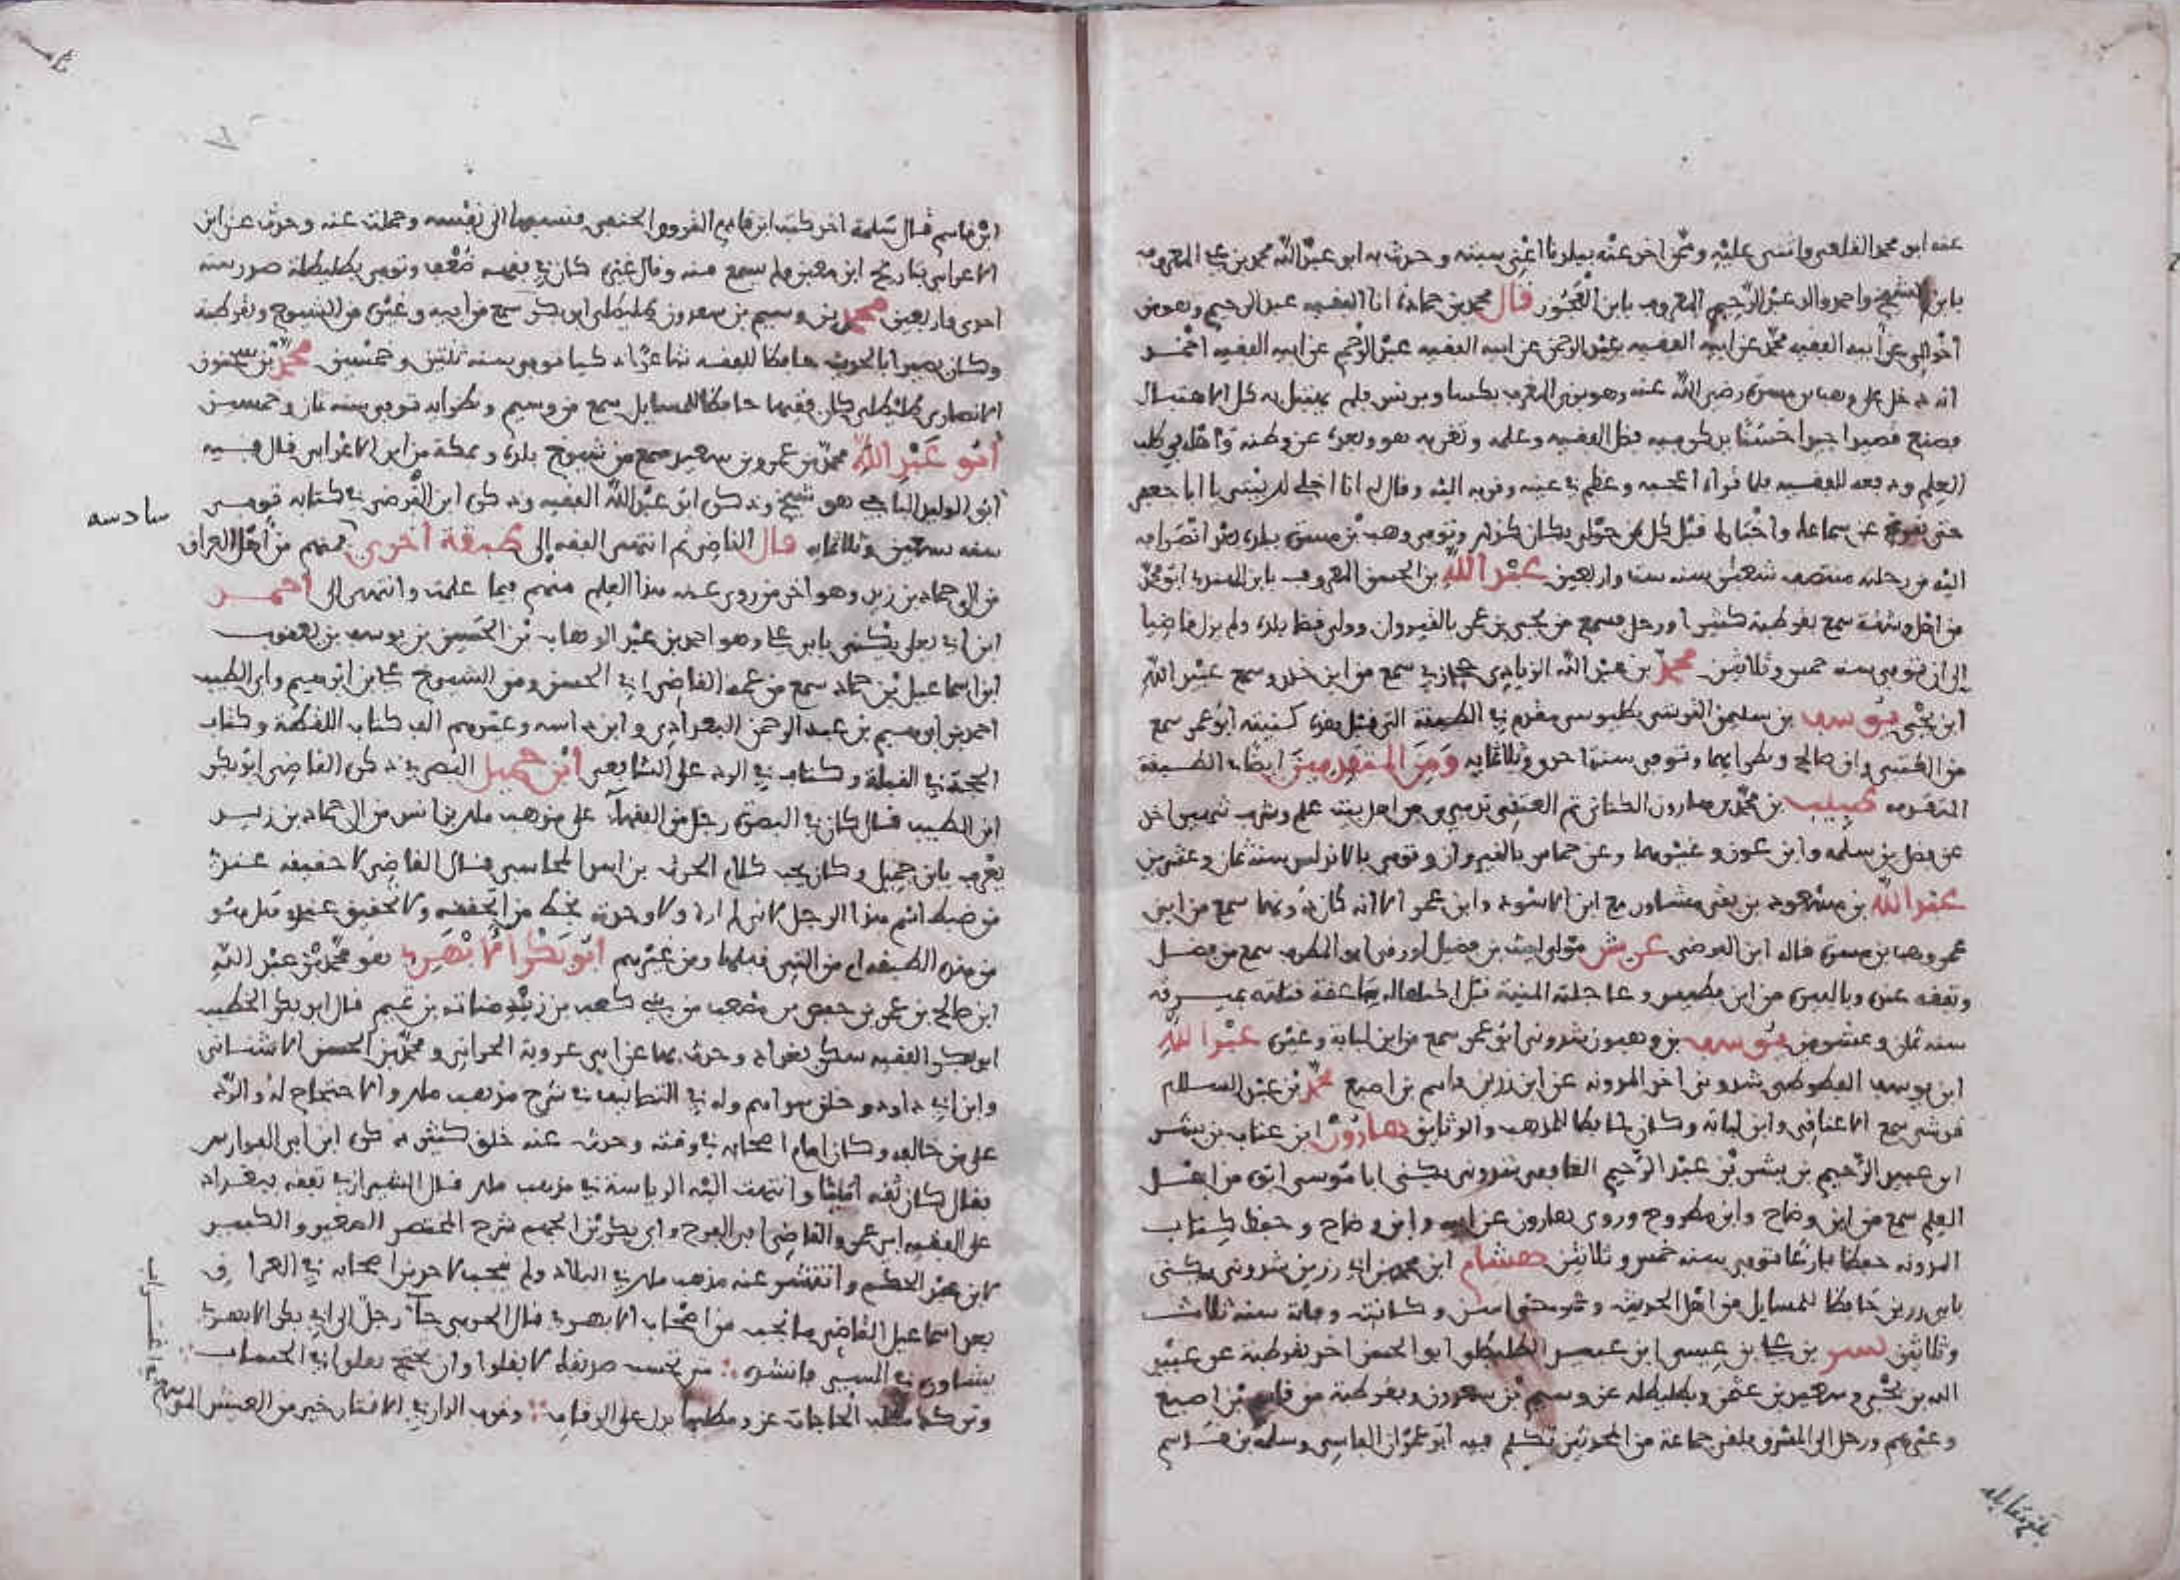 عنه ابو محمد القلعي واثنى عليه وممن اخذ عنه ببلدنا اعني سبتة وحدث به ابو عبد الله محمد بن علي المعروف
بابن الشيخ واحمد والد عبد الرحيم المعروف بابن العجوز قال محمد بن حمادة انا الفقيه عبد الرحيم وهو من
اخوالي عن ابيه الفقيه محمد عن ابيه الفقيه عبد الرحمن عن ابيه الفقيه عبد الرحيم عن ابيه الفقيه احمد
انه دخل على وهب بن مسرة رضي الله عنه وهو من المغرب بكسا وبرنس فلم يهتبل به كل الاهتبال
فصنع قصيدا جيدا حسنا يذكر فيه فضل الفقيه وعلمه وتغربه هو وبعده عن وطنه واهله في طلب
العلم ودفعه للفقيه فلما قراه اعجبه وعظم في عينه وقربه اليه وقال له انا اجلي لك بيتي يا ابا جعفر
حتى سماعك واختار لك قبل كل من حولي فكان كذلك وتوفي وهب بن مسرة ببلده بعد انصرافه
اليه من رحلته منتصف شعبان سنة ست واربعين عبد الله بن الحسن المعروف بابن السندي ابو محمد
من اهل وشقة سمع بقرطبة كثيرا ورحل فسمع من يحيى بن عمر بالقيروان وولي قضا بلده ولم يزل قاضيا
الى ان توفي سنة خمس وثلاثين محمد بن عبد الله الزيادي سمع من ابن خلدو وسمع عبيد الله
ابن يحيى يوسف بن سليمان القرشي بطليوسي مقدم في الطبقة التي قبل هذه كنيته ابو عمر سمع
من الخشني وابن صالح ونظرايهما وتوفي سنة احدى وثلاثماية ومن المتقدمين ايضا في الطبقة
المتقدمة خطيب بن محمد بن هارون الكناني ثم العتقي تدميري من اهل بيت علم وشرف شهير اخذ
عن فضل بن سلمة وابن عون وغيرهما وعن حماس بالقيروان وتوفي بالاندلس سنة ثمان وعشرين
عبد الله بن مسعود بن يفتي مشاور مع ابن الاسود وابن عمر الا انه كان دونهما سمع من ابني
عمر وهب بن مسرة قاله ابن الفرضي مولى ليث بن فضيل اورفي ابو المطرف سمع من فضل
وتفقه عنده وبالبيري من ابن فطيس وعاجلته المنية قبل اكتهاله صاعقة قتلته بميرقة
سنة ثمان وعشرين يوسف بن وهبون شذوني ابو عمر سمع من ابن لبابة وغيره عبد الله
ابن يوسف شذوني اخذ المدونة عن ابن رزين وقاسم بن اصبغ محمد بن عبد السلام
قرشي سمع الاعناقي وابن لبابة وكان حافظا للمذهب والوثايق هارون ابن عتاب بن بشر
ابن عبد الرحيم بن بشر بن عبد الرحيم الغافقي شذوني يكنى ابا موسى ابوه من اهل
العلم سمع من ابن وضاح وابن مطروح وروى هارون عن ابيه وابن وضاح وحفظ كتاب
المدونة حفظا بارعا توفي سنة خمس وثلاثين هشام ابن محمد بن ابي رزين شذوني يكنى
بابي رزين حافظا للمسايل من اهل الحديث وعمر حتى اسن وكانت وفاته سنة ثلاث
وثلاثين بن علي بن عيسى ابن عبيد الطليطلي ابو الحسن اخذ بقرطبة عن عبيد
الله بن يحيى وسعيد بن عثمن وبطليطلة عن وسيم بن سعدون وبقرطبة من قاسم بن اصبغ
وغيرهم ورحل الى المشرق فلقي جماعة من المحدثين تكلم فيه ابو عمران الفاسي وسلمة بن قاسم
بلغ مقابلة
ابن قاسم قال سلمة اخذ كتب ابن قادم القروي الحنفي فنسبها الى نفسه وحملت عنه وحدث عن ابن
الاعرابي بتاريخ ابن معين ولم يسمع منه وقال غيره كان في فهمه ضعف وتوفي بطليطلة صدر سنة
احدى واربعين محمد بن وسيم بن سعدون طليطلي ابو بكر سمع من ابيه وغيره من الشيوخ وبقرطبة
وكان بصيرا بالحديث حافظا للفقه شاعرا اديبا توفي سنة ثنتين وخمسين محمد بن سحنون
الانصاري طليطلي كان فقيها حافظا للمسايل سمع من وسيم ونظرايه توفي سنة ثمان وخمسين
ابو عبد الله محمد بن عمرو بن سعيد سمع من شيوخ بلده وبمكة من ابن الاعرابي قال فيه
ابو الوليد الباجي هو شيخ وذكره ابو عبد الله الفقيه وذكره ابن الفرضي في كتابه توفي
سنة ستين وثلاثماية قال القاضي ثم انتهى الفقه الى طبقة اخرى فمنهم من اهل العراق
سادسة
من ال حماد بن زيد وهو اخر من روي عنه هذا العلم منهم فيما علمت وانتهى الى احمد
ابن ابي يعلى يكنى بابي علي وهو احمد بن عبد الوهاب بن الحسين بن يوسف بن يعقوب
ابن اسماعيل بن حماد سمع من عمه القاضي ابي الحسين ومن الشيوخ علي بن ابراهيم وابي الطيب
احمد بن ابراهيم بن عبد الرحمن البغدادي وابن داسة وغيرهم الف كتاب اللفظة وكتاب
الحجة في القبلة وكتاب في الرد على الشافعي ابن جميل البصري ذكره القاضي ابو بكر
ابن الطيب فقال كان في البصرة رجل من الفقهآ على مذهب ملك بن انس من ال حماد بن زيد
يعرف بابن جميل وكان يحب كلام الحرث بن اسد المحاسبي قال القاضي لا حقيقة عندي
من ضبط اسم هذا الرجل لاني لم اره ولا وجدته بخط من الحفظة ولا تحقيق عندي هل هو
من هذه الطبقة او من التي قبلها ومن غيرهم ابو بكر الابهري هو محمد بن عبد الله
ابن صالح بن عمر بن حفص بن مصعب من بني كعب بن زيد مناة بن تميم قال ابو بكر الخطيب
ابو بكر الفقيه سكن بغداد وحدث بها عن ابي عروبة الحراني ومحمد بن الحسين الاشناني
وابن ابي داود وخلق سواهم وله في التصانيف في شرح مذهب ملك والاحتجاج له والرد
على من خالفه وكان امام اصحابه في وقته وحدث عنه خلق كثير ذكره ابن ابي الفوارس
فقال كان ثقة امينا وانتهت اليه الرياسة في مذهب ملك قال الشيرازي تفقه ببغداد
على الفقيه ابي عمر والقاضي ابي الفرج وابي بكر بن الجهم شرح المختصر الصغير والكبير
لابن عبد الحكم وانتشر عنه مذهب ملك في البلاد ولم ينجب لاحد من اصحابه في العراق
بعد اسماعيل القاضي ما نجب من اصحاب الابهري قال الحوسي جآ رجل الى ابي بكر الابهري
يشاوره في السير فانشده متى تحسب صديقك لا يقلوا وان تخبر يقلوا في الحساب
وتركك مطلب الحاجات عز ومطلبها يدل على الرقاب وقرب الدار في الاقتار خير من العيش الموسع
في اغتراب